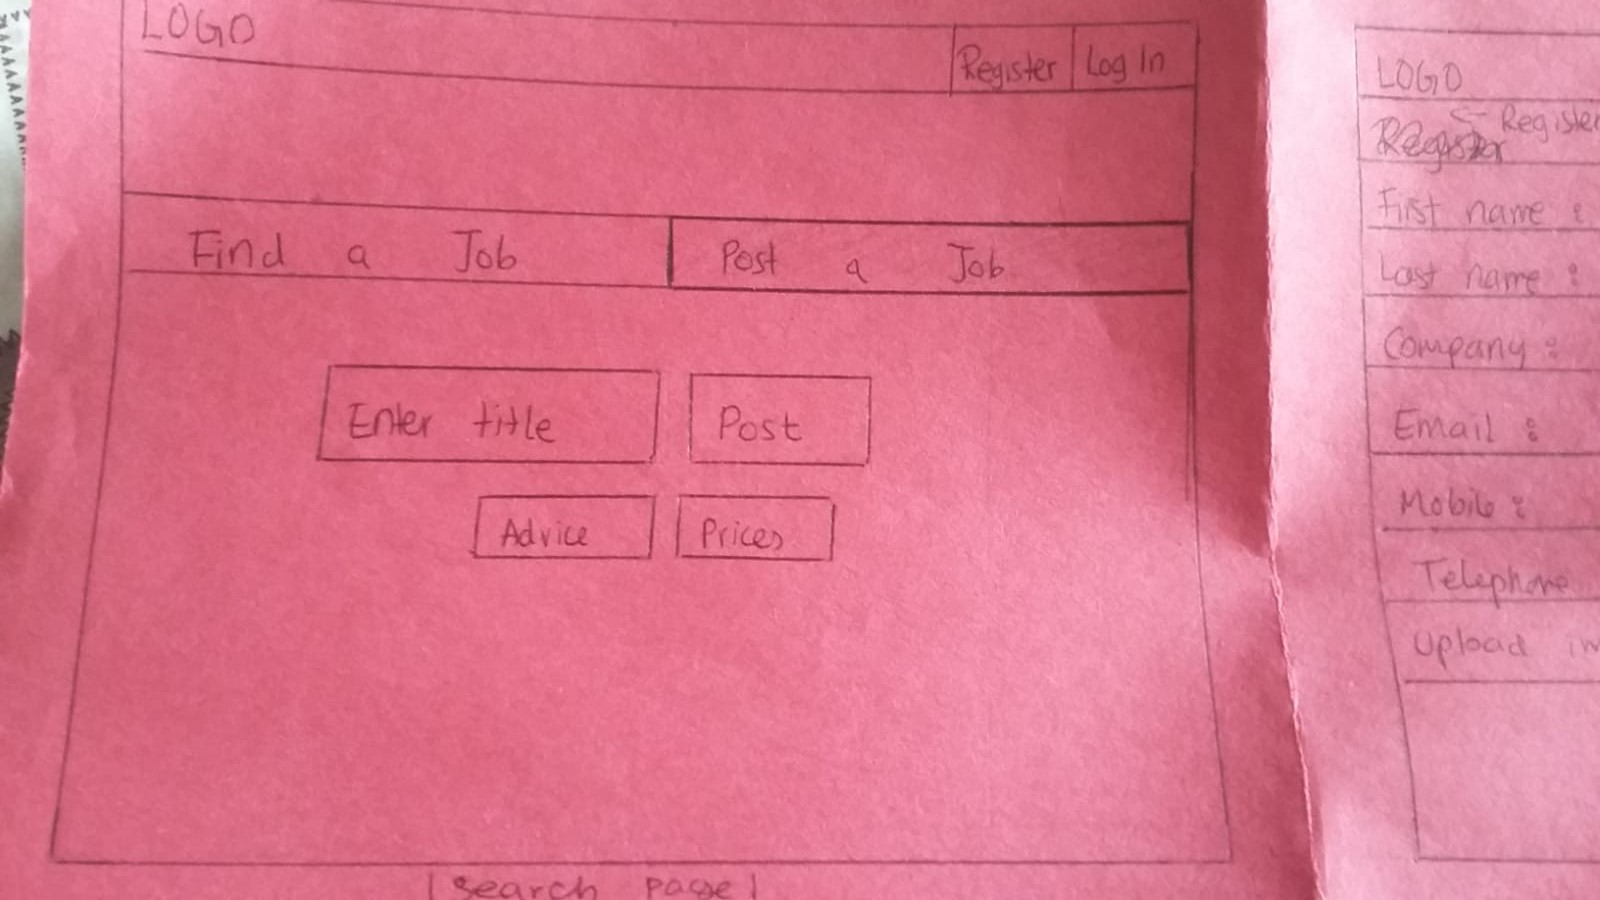 LOGO
Register
Log In
Find a Job
Post a Job
Enter title
Post
Advice
Prices
Search page
LOGO
← Register
Register
First name :
Last name :
Company :
Email :
Mobile :
Telephone
Upload